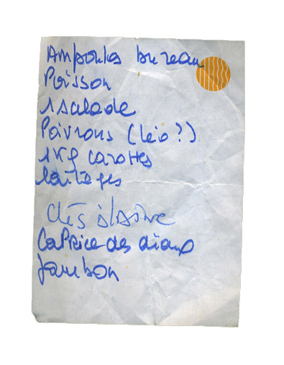 Ampoules bureau
Poisson
1 salade
Poivrons (Léo?)
1 kg carottes
laitages
Caprice des dieux
Jambon